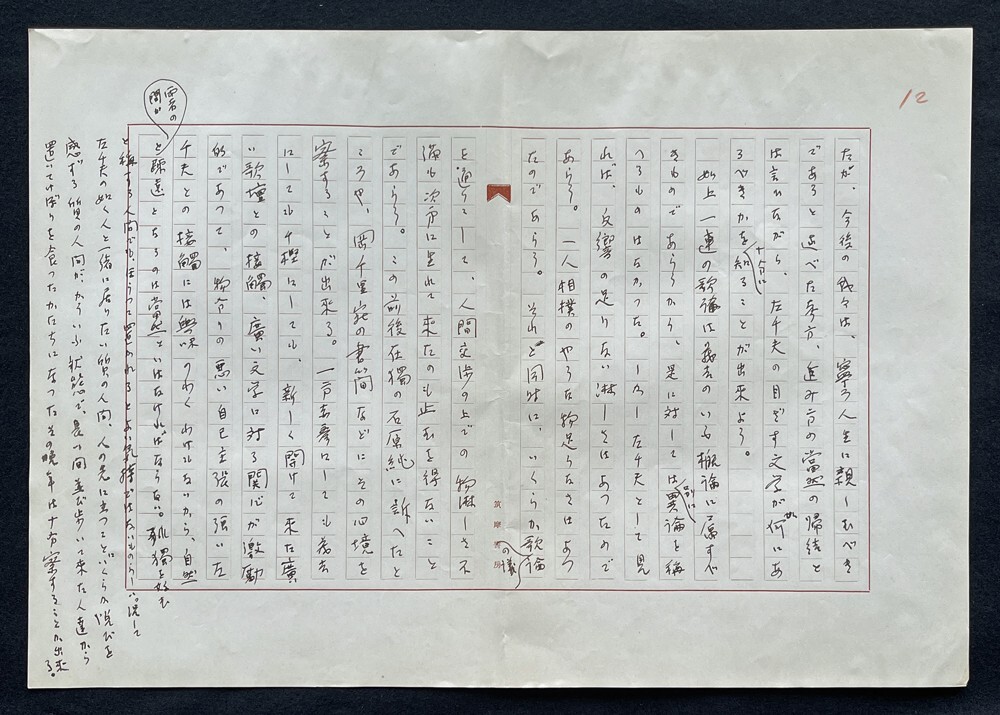 12
だが、今後の我々は、寧ろ人生に親しむべき
であると述べた考方、進み方の当然の帰結と
は言ひながら、左千夫の目ざす文学が何にあ
るべきかを十分に知ることが出来よう。
如上一連の歌論は義去のいふ概論に属すべ
きものであらうから、是に対しては異論を称
へるものはなかつた。しかし左千夫として見
れば、反響の足りない淋しさはあつたので
あらう。一人相撲のやうな物足らなさはあつ
たのであらう。それと同時に、いくらか歌論
の議
筑摩書房
を通らして、人間交渉の上での物淋しさ不
満も次第に生れて来たのも止むを得ないこと
であらう。この前後在独の石原純に訴へたと
ころや、岡千里宛の書簡などにその心境を
察することが出来る。一部去秀にしても義去
にしても千樫にしても、新しく開けて来た廣
い歌壇との接觸、廣い文学に対する関心が激動
的であつて、物分りの悪い自己主張の強い左
千夫との接觸には興味のわくわけもないから、自然
と疎遠となるのは當然といはなければならない。孤獨を好む
と称する人間でも、まうつて置かれるとよい気持ではないものらしい。况して
左千夫の如く人と一緒に居りたい質の人間、人の先に立つてといくらか悦びを
感ずる質の人間が、かういふ状態で、長い間並び歩いて来た人達から
置いてけぼりを食つたかたちになつたその晩年は十分察することが出来る。